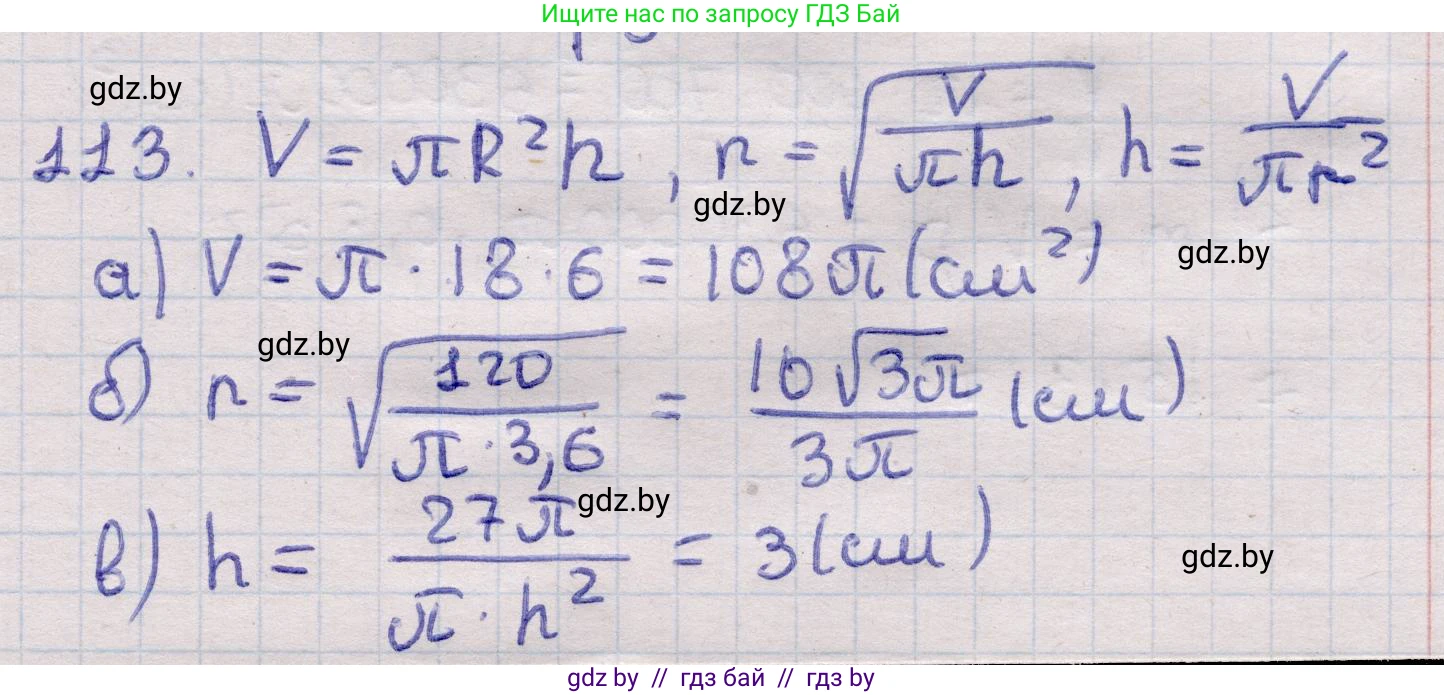 Ищите нас по запросу ГДЗ Бай
gdz.by
113. V = πR²h, r = √(V/(πh)), h = V/(πr²)
gdz.by
gdz.by
а) V = π · 18 · 6 = 108π (см²)
gdz.by
б) r = √(120/(π · 3,6)) = 10√3π/(3π) (см)
gdz.by
в) h = 27π/(π · h²) = 3 (см)
gdz.by
gdz.by // гдз бай // гдз by